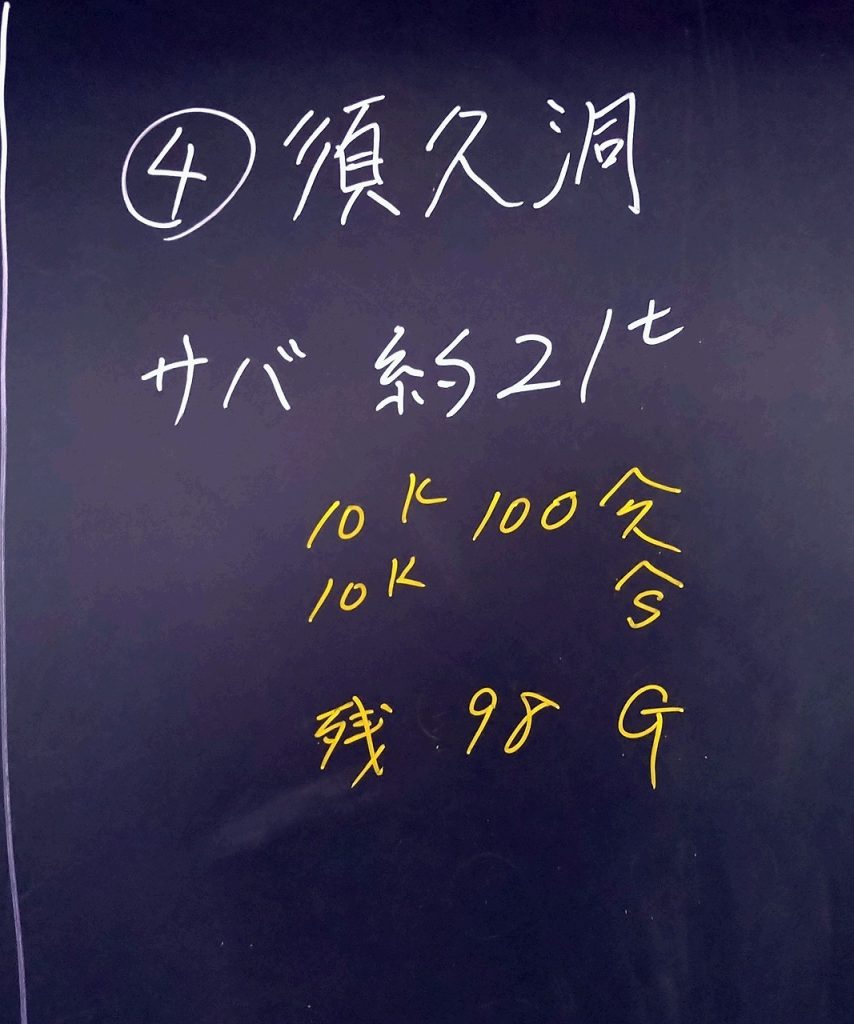 ④須久洞
サバ 約21t
10K 100
10K
残 98